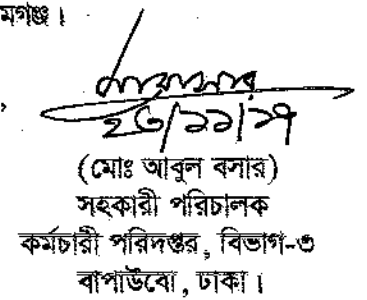 মগঞ্জ।
,
২৩/১১/১৭
(মোঃ আবুল বসার)
সহকারী পরিচালক
কর্মচারী পরিদপ্তর, বিভাগ-৩
বাপাউবো, ঢাকা।